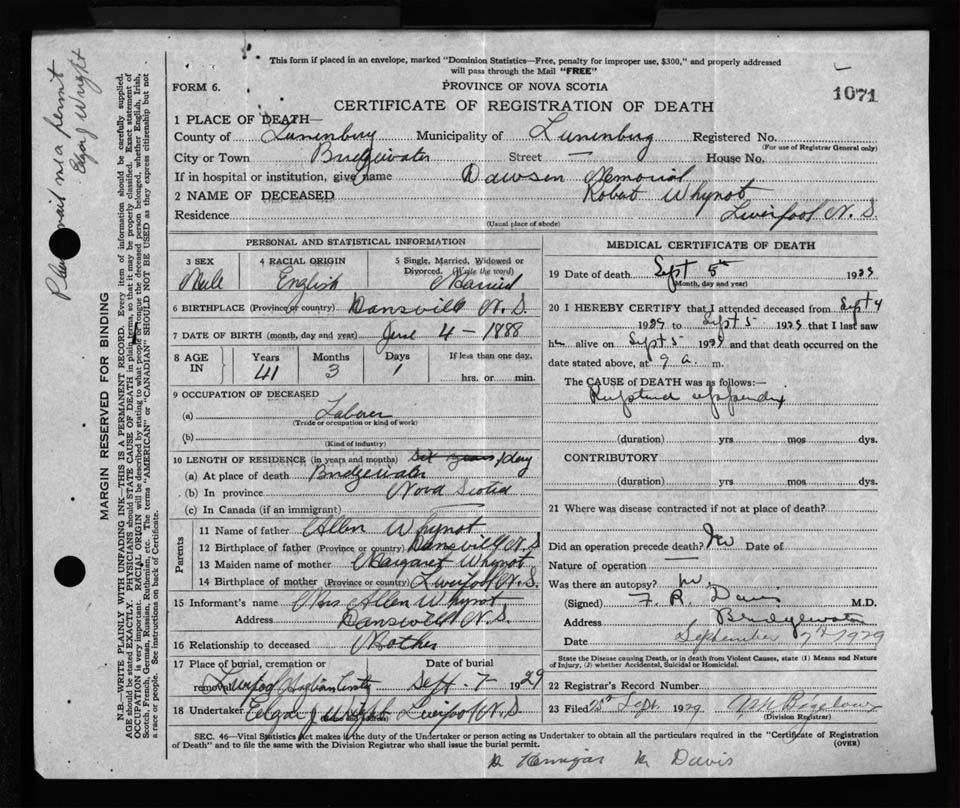 This form if placed in an envelope, marked "Dominion Statistics—Free, penalty for improper use, $300," and properly addressed
will pass through the Mail "FREE"
FORM 6.
PROVINCE OF NOVA SCOTIA
1071
CERTIFICATE OF REGISTRATION OF DEATH
1 PLACE OF DEATH—
County of Lunenburg Municipality of Lunenburg Registered No.
(For use of Registrar General only)
City or Town Bridgewater Street — House No.
If in hospital or institution, give name Dawson Memorial
2 NAME OF DECEASED Robert Whynot
Residence Liverpool N. S.
(Usual place of abode)
PERSONAL AND STATISTICAL INFORMATION
3 SEX Male
4 RACIAL ORIGIN English
5 Single, Married, Widowed or Divorced. (Write the word) Married
6 BIRTHPLACE (Province or country) Dansville N. S.
7 DATE OF BIRTH (month, day and year) June 4 – 1888
8 AGE IN Years 41 Months 3 Days 1 If less than one day, hrs. or min.
9 OCCUPATION OF DECEASED
(a) Laborer
(Trade or occupation or kind of work)
(b)
(Kind of industry)
10 LENGTH OF RESIDENCE (in years and months) Six years 1 day
(a) At place of death Bridgewater
(b) In province Nova Scotia
(c) In Canada (if an immigrant)
Parents
11 Name of father Allen Whynot
12 Birthplace of father (Province or country) Dansville N. S.
13 Maiden name of mother Margaret Whynot
14 Birthplace of mother (Province or country) Liverpool N. S.
15 Informant's name Mrs Allen Whynot
Address Dansville N. S.
16 Relationship to deceased Mother
17 Place of burial, cremation or removal Liverpool
Date of burial Sept – 7 – 1929
18 Undertaker Edgar J Wright Liverpool N. S.
(Name and address)
MEDICAL CERTIFICATE OF DEATH
19 Date of death Sept 5th 1929
(Month, day and year)
20 I HEREBY CERTIFY that I attended deceased from Sept 4
1929 to Sept 5 1929 that I last saw
him alive on Sept 5 1929 and that death occurred on the
date stated above, at 9 a. m.
The CAUSE OF DEATH was as follows:—
Ruptured appendix
(duration) yrs. mos. dys.
CONTRIBUTORY
(duration) yrs. mos. dys.
21 Where was disease contracted if not at place of death?
Did an operation precede death? No Date of
Nature of operation —
Was there an autopsy? No
(Signed) F. R. Davis M.D.
Address Bridgewater
Date September 7th 1929
State the Disease causing Death, or in death from Violent Causes, state (1) Means and Nature
of Injury, (2) whether Accidental, Suicidal or Homicidal.
22 Registrars Record Number
23 Filed Sept. 1929
(Division Registrar)
SEC. 46—Vital Statistics Act makes it the duty of the Undertaker or person acting as Undertaker to obtain all the particulars required in the "Certificate of Registration
of Death" and to file the same with the Division Registrar who shall issue the burial permit.
(OVER)
Dr Davis
MARGIN RESERVED FOR BINDING
N.B.—WRITE PLAINLY WITH UNFADING INK—THIS IS A PERMANENT RECORD. Every item of information should be carefully supplied.
AGE should be stated EXACTLY. PHYSICIANS should STATE CAUSE OF DEATH in plain terms, so that it may be properly classified. Exact statement of
OCCUPATION is very important. RACIAL ORIGIN will be described by stating to what people or tongue the deceased person belonged, whether English, Irish,
Scotch, French, German, Russian, Ruthenian, etc. The terms "AMERICAN" or "CANADIAN" SHOULD NOT BE USED as they express citizenship but not
a race or people. See instructions on back of Certificate.
me a permit
Edgar Wright